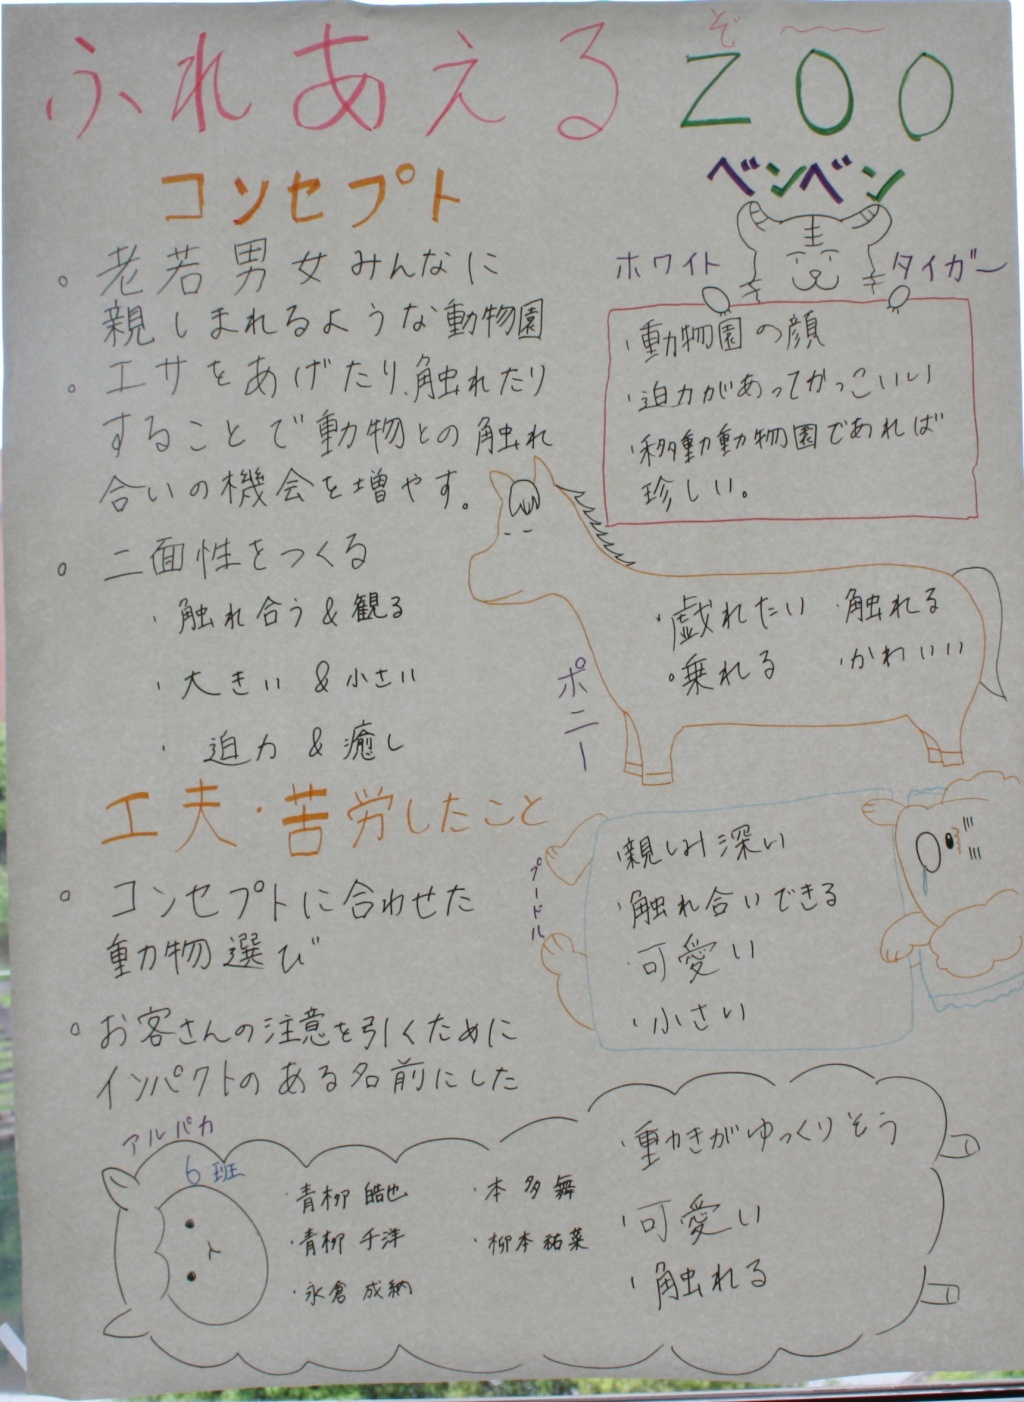 ふれあえるZOO
ぞ〜
コンセプト
。老若男女みんなに
親しまれるような動物園
。エサをあげたり、触れたり
することで動物との触れ
合いの機会を増やす。
。二面性をつくる
・触れ合う&観る
・大きい&小さい
・迫力&癒し
工夫・苦労したこと
。コンセプトに合わせた
動物選び
。お客さんの注意を引くために
インパクトのある名前にした
ベンベン
ホワイトタイガー
・動物園の顔
・迫力があってかっこいい
・移動動物園であれば
珍しい。
ポニー
・戯れたい ・触れる
・乗れる ・かわいい
プードル
・親しみ深い
・触れ合いできる
・可愛い
・小さい
アルパカ
6班
・青柳 皓也
・青柳 千洋
・永倉 成納
・本多 舞
・柳本 祐菜
・動きがゆっくりそう
・可愛い
・触れる